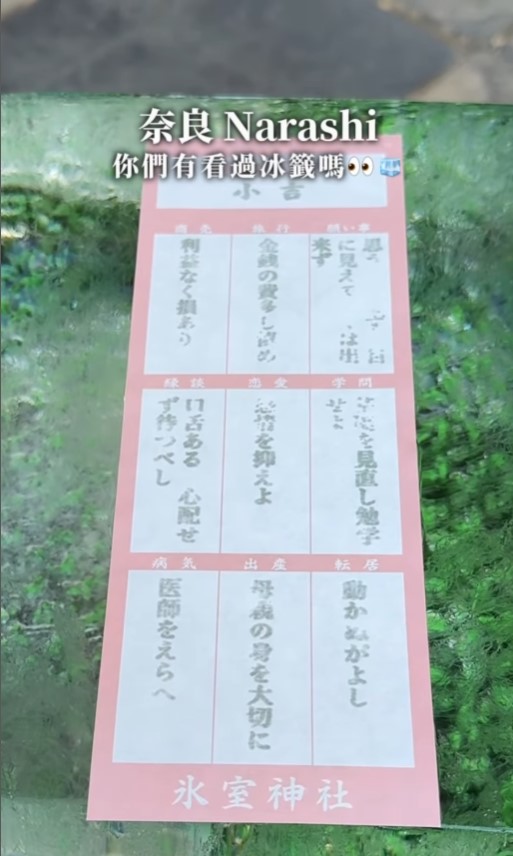 奈良 Narashi
你們有看過冰籤嗎👀
小吉
商売
旅行
願い事
利益なく損あり
金銭の費多し
に見えて
は出
来ず
縁談
恋愛
学問
口舌ある 心配せ
ず待つべし
を抑えよ
を見直し勉学
病気
出産
転居
医師をえらべ
母親の身を大切に
動かぬがよし
氷室神社